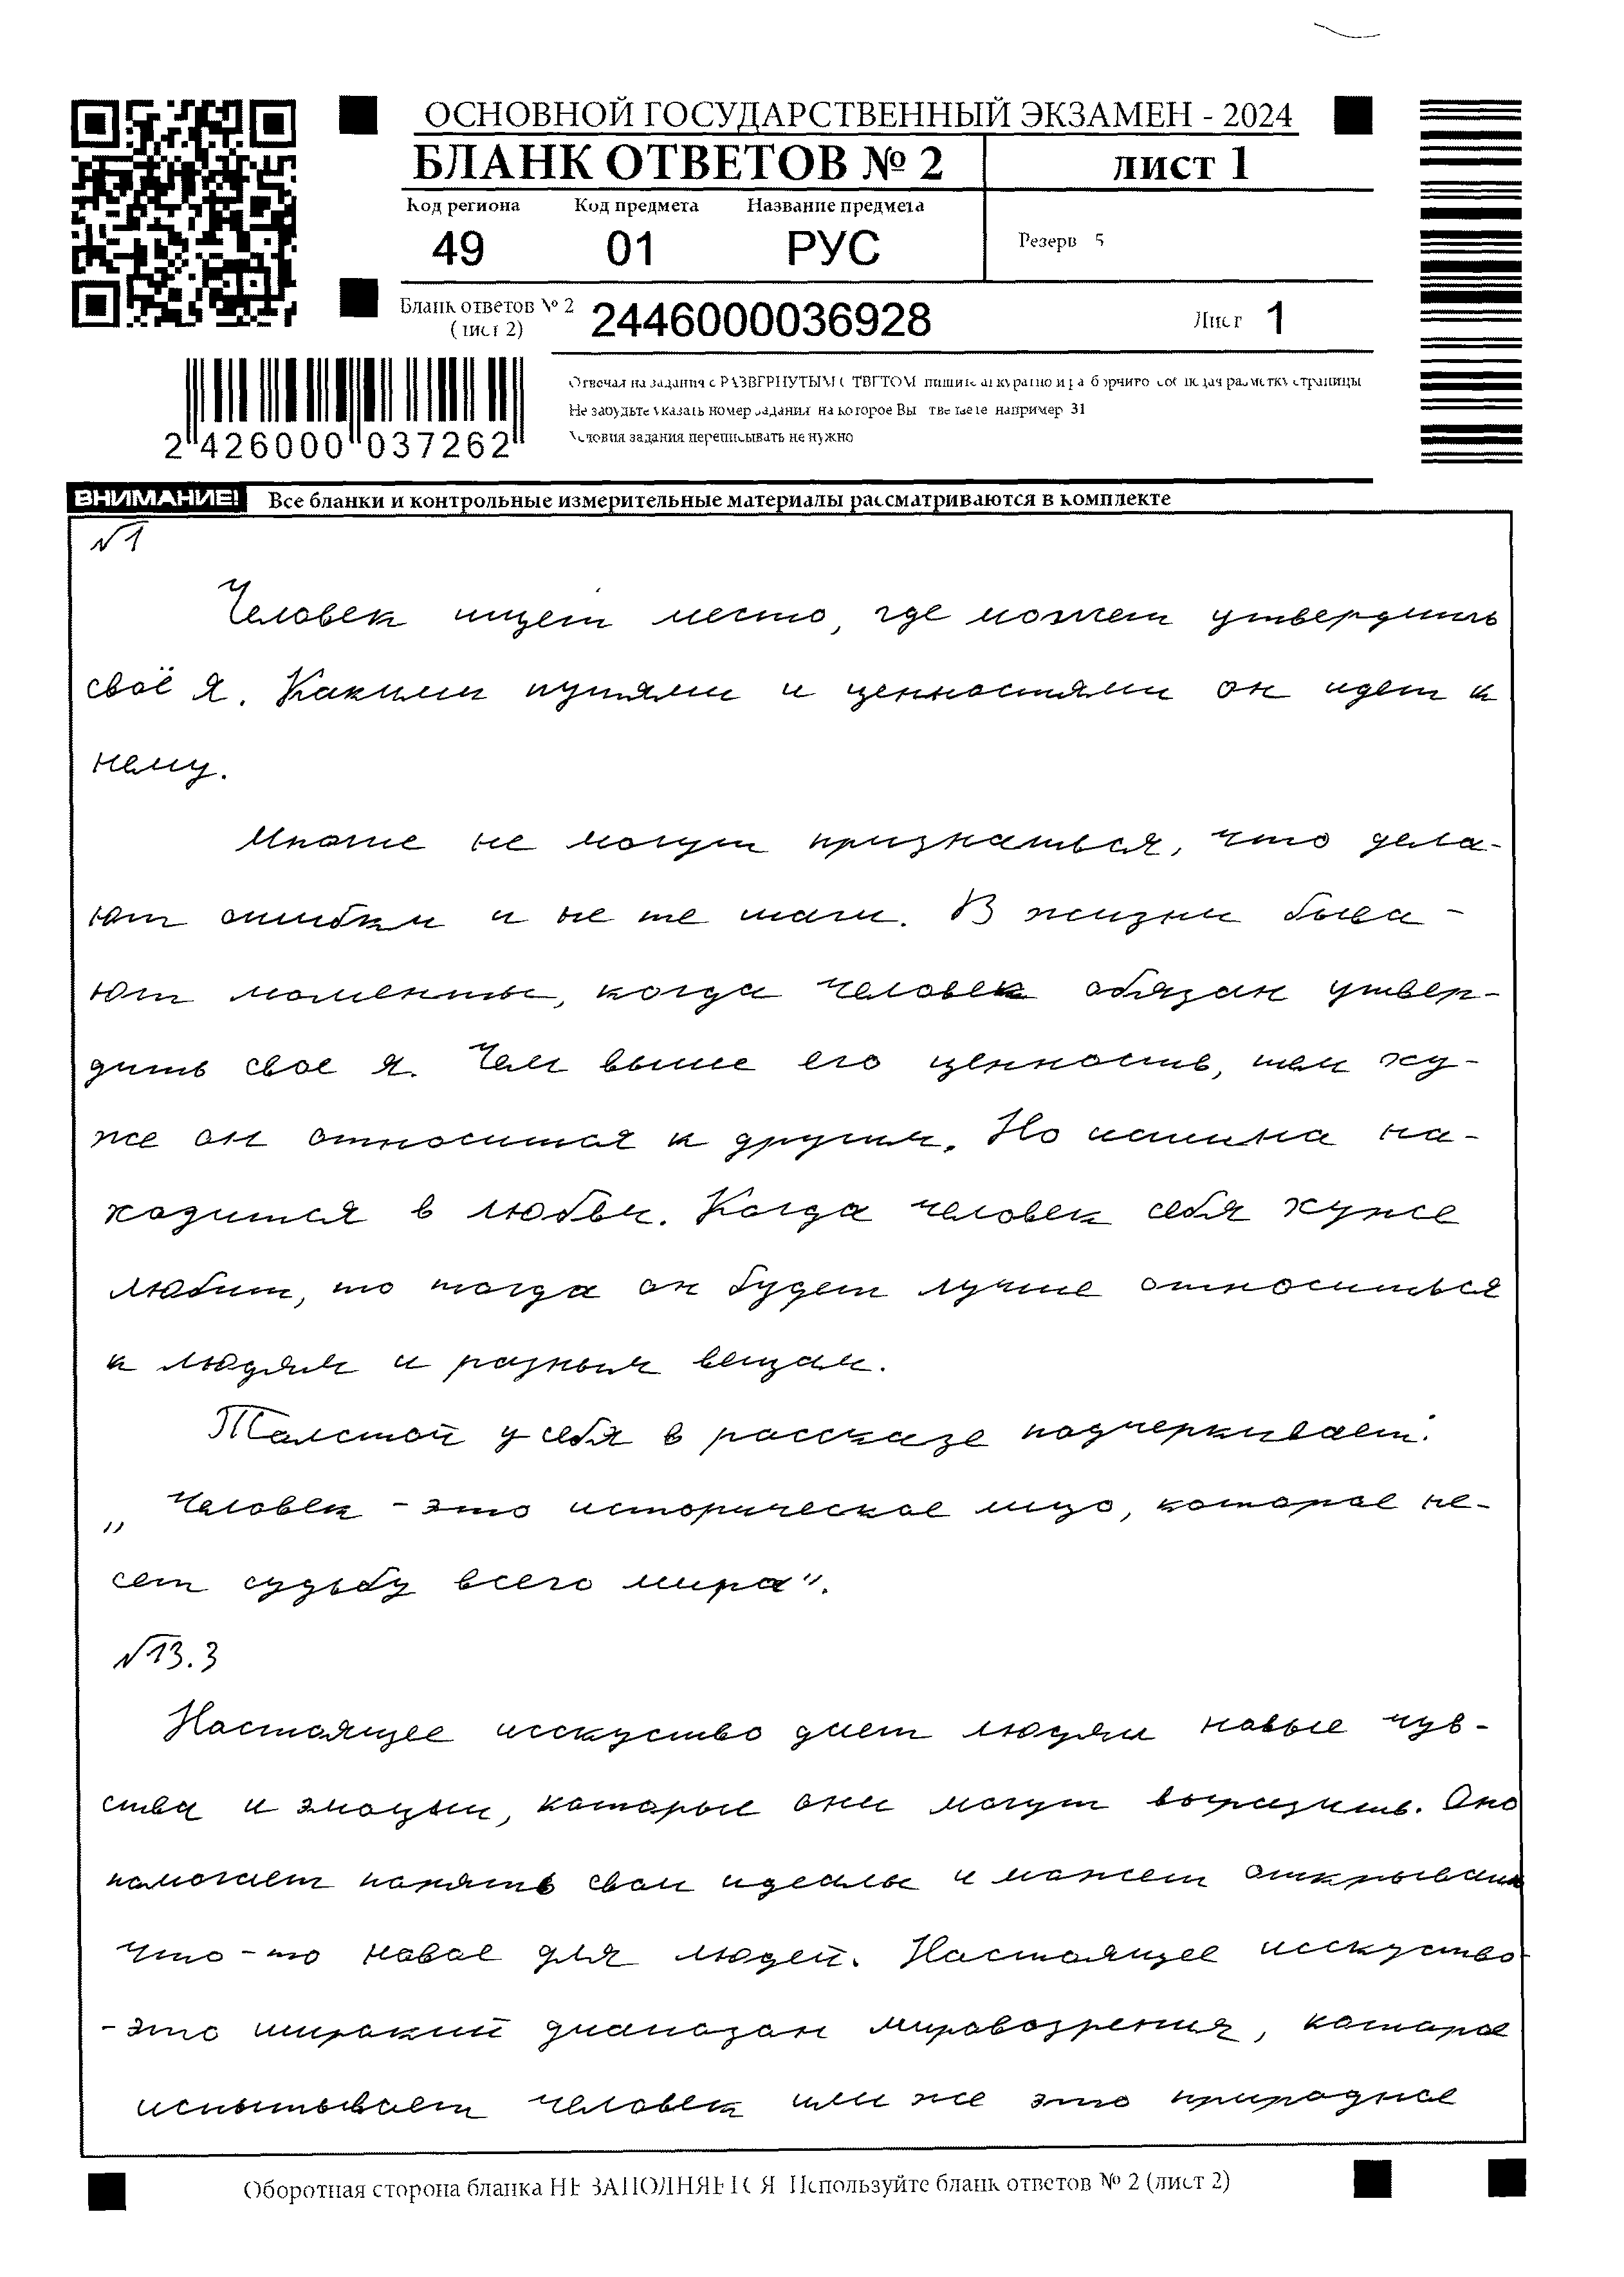 ОСНОВНОЙ ГОСУДАРСТВЕННЫЙ ЭКЗАМЕН - 2024
БЛАНК ОТВЕТОВ № 2 лист 1
Код региона Код предмета Название предмета
49 01 РУС Резерв 5
Бланк ответов № 2 2446000036928 Лист 1
(лист 2)
Отвечая на задания с РАЗВЕРНУТЫМ ОТВЕТОМ пишите аккуратно и разборчиво соблюдая разметку страницы
Не забудьте указать номер задания на которое Вы отвечаете например 31
Условия задания переписывать не нужно
2 426000 037262
ВНИМАНИЕ! Все бланки и контрольные измерительные материалы рассматриваются в комплекте
№1
Человек ищет место, где может утвердить
своё я. Какими путями и ценностями он идет к
нему.
Многие не могут признаться, что дела-
ют ошибки и не те шаги. В жизни быва-
ют моменты, когда человек обязан утвер-
дить свое я. Чем выше его ценность, тем ху-
же он относится к другим. Но истина на-
ходится в любви. Когда человек себя хуже
любит, то тогда он будет лучше относиться
к людям и разным вещам.
Толстой у себя в рассказе подчеркивает:
„Человек - это историческое лицо, которое не-
сет судьбу всего мира".
№13.3
Настоящее исскуство дает людям новые чув-
ства и эмоции, которые они могут выразить. Оно
помогает понять свои идеалы и может открывать
что-то новое для людей. Настоящее исскуство
- это широкий диапазон мировозрения, которое
испытывает человек или же это природное
Оборотная сторона бланка НЕ ЗАПОЛНЯЕТСЯ Используйте бланк ответов № 2 (лист 2)